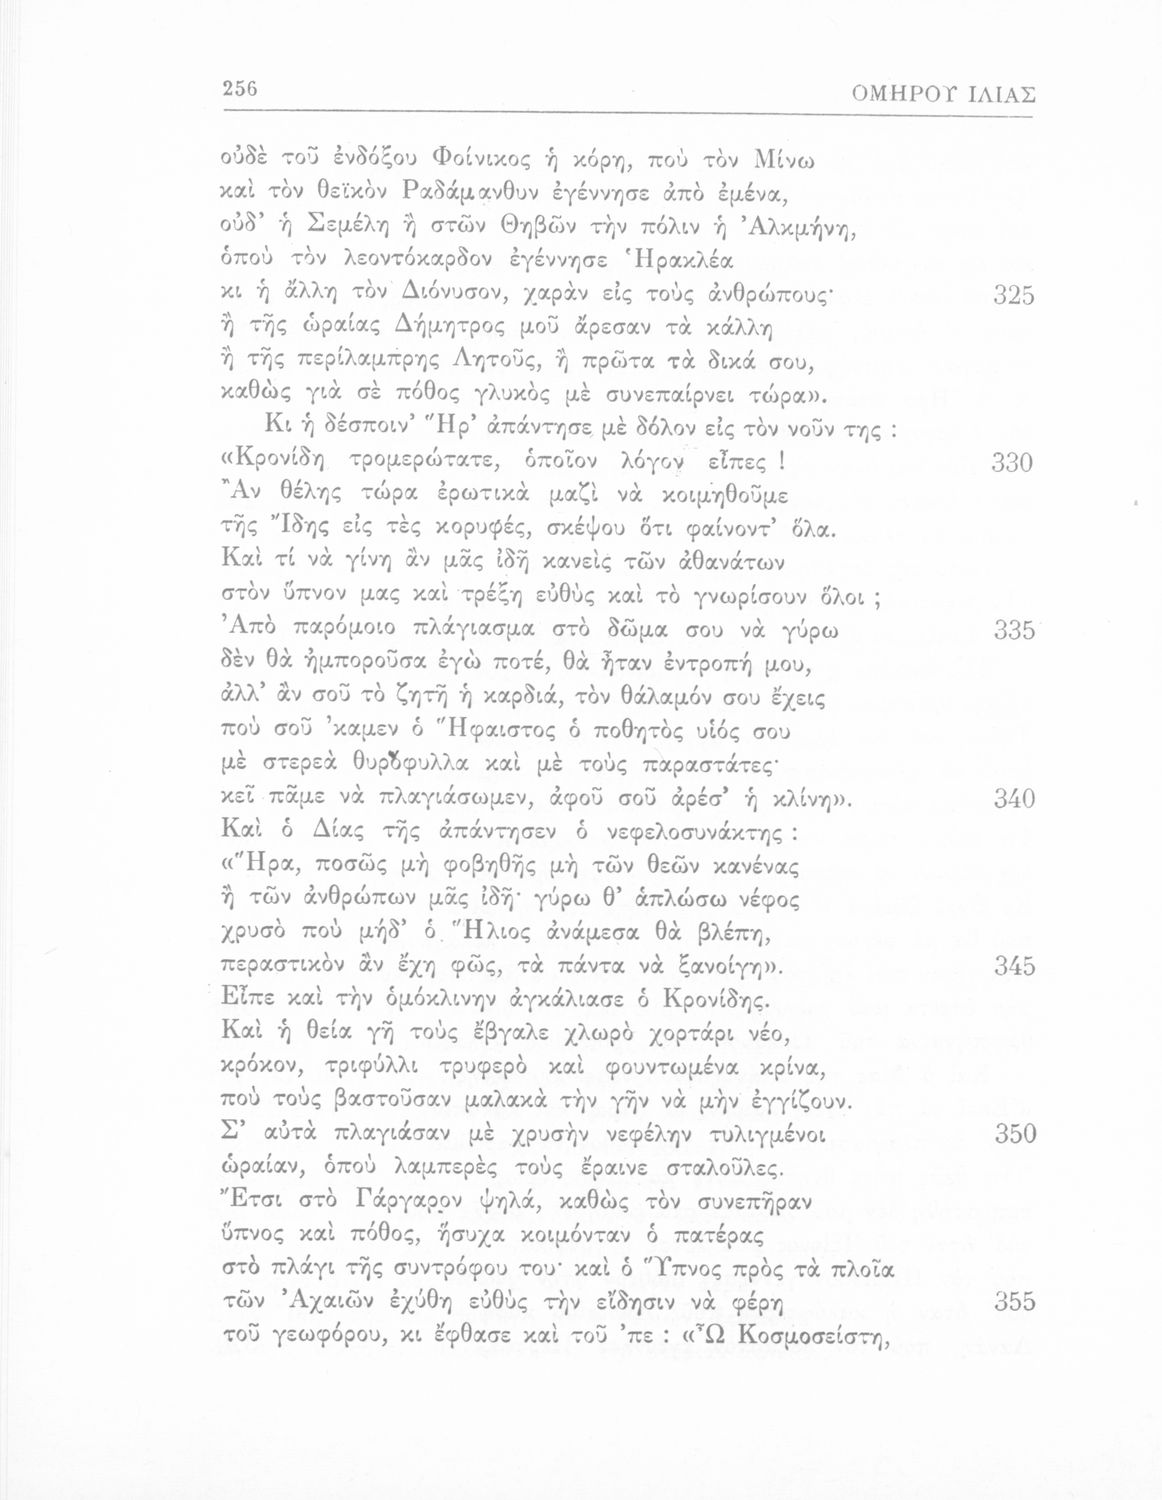 256 ΟΜΗΡΟΥ ΙΛΙΑΣ
οὐδὲ τοῦ ἐνδόξου Φοίνικος ἡ κόρη, ποὺ τὸν Μίνω
καὶ τὸν θεϊκὸν Ραδάμανθυν ἐγέννησε ἀπὸ ἐμένα,
οὐδ’ ἡ Σεμέλη ἢ στῶν Θηβῶν τὴν πόλιν ἡ Ἀλκμήνη,
ὁποὺ τὸν λεοντόκαρδον ἐγέννησε Ἡρακλέα
κι ἡ ἄλλη τὸν Διόνυσον, χαρὰν εἰς τοὺς ἀνθρώπους· 325
ἢ τῆς ὡραίας Δήμητρος μοῦ ἄρεσαν τὰ κάλλη
ἢ τῆς περίλαμπρης Λητοῦς, ἢ πρῶτα τὰ δικά σου,
καθὼς γιὰ σὲ πόθος γλυκὸς μὲ συνεπαίρνει τώρα».
Κι ἡ δέσποιν’ Ἥρ’ ἀπάντησε μὲ δόλον εἰς τὸν νοῦν της :
«Κρονίδη τρομερώτατε, ὁποῖον λόγον εἶπες ! 330
Ἂν θέλης τώρα ἐρωτικὰ μαζὶ νὰ κοιμηθοῦμε
τῆς Ἴδης εἰς τὲς κορυφές, σκέψου ὅτι φαίνοντ’ ὅλα.
Καὶ τί νὰ γίνη ἂν μᾶς ἰδῆ κανεὶς τῶν ἀθανάτων
στὸν ὕπνον μας καὶ τρέξη εὐθὺς καὶ τὸ γνωρίσουν ὅλοι ;
Ἀπὸ παρόμοιο πλάγιασμα στὸ δῶμα σου νὰ γύρω 335
δὲν θὰ ἠμποροῦσα ἐγὼ ποτέ, θὰ ἦταν ἐντροπή μου,
ἀλλ’ ἂν σοῦ τὸ ζητῆ ἡ καρδιά, τὸν θάλαμόν σου ἔχεις
ποὺ σοῦ ’καμεν ὁ Ἥφαιστος ὁ ποθητὸς υἱός σου
μὲ στερεὰ θυρόφυλλα καὶ μὲ τοὺς παραστάτες·
κεῖ πᾶμε νὰ πλαγιάσωμεν, ἀφοῦ σοῦ ἀρέσ’ ἡ κλίνη». 340
Καὶ ὁ Δίας τῆς ἀπάντησεν ὁ νεφελοσυνάκτης :
«Ἥρα, ποσῶς μὴ φοβηθῆς μὴ τῶν θεῶν κανένας
ἢ τῶν ἀνθρώπων μᾶς ἰδῆ· γύρω θ’ ἁπλώσω νέφος
χρυσὸ ποὺ μήδ’ ὁ Ἥλιος ἀνάμεσα θὰ βλέπη,
περαστικὸν ἂν ἔχη φῶς, τὰ πάντα νὰ ξανοίγη». 345
Εἶπε καὶ τὴν ὁμόκλινην ἀγκάλιασε ὁ Κρονίδης.
Καὶ ἡ θεία γῆ τοὺς ἔβγαλε χλωρὸ χορτάρι νέο,
κρόκον, τριφύλλι τρυφερὸ καὶ φουντωμένα κρίνα,
ποὺ τοὺς βαστοῦσαν μαλακὰ τὴν γῆν νὰ μὴν ἐγγίζουν.
Σ’ αὐτὰ πλαγιάσαν μὲ χρυσὴν νεφέλην τυλιγμένοι 350
ὡραίαν, ὁποὺ λαμπερὲς τοὺς ἔραινε σταλοῦλες.
Ἔτσι στὸ Γάργαρον ψηλά, καθὼς τὸν συνεπῆραν
ὕπνος καὶ πόθος, ἥσυχα κοιμόνταν ὁ πατέρας
στὸ πλάγι τῆς συντρόφου του· καὶ ὁ Ὕπνος πρὸς τὰ πλοῖα
τῶν Ἀχαιῶν ἐχύθη εὐθὺς τὴν εἴδησιν νὰ φέρη 355
τοῦ γεωφόρου, κι ἔφθασε καὶ τοῦ ’πε : «Ὦ Κοσμοσείστη,